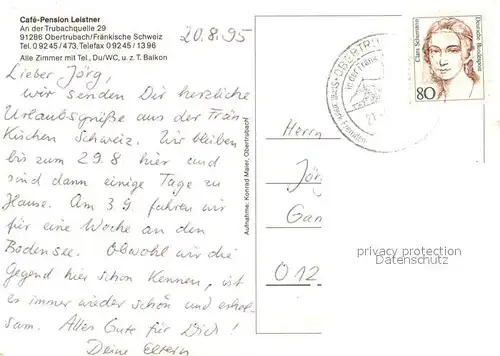 Café-Pension Leistner
An der Trubachquelle 29
91286 Obertrubach/Fränkische Schweiz
Tel. 0 92 45 / 473, Telefax 0 92 45 / 13 96
Alle Zimmer mit Tel., Du/WC, u. z. T. Balkon
20.8.95
Lieber Jörg,
wir senden Dir herzliche
Urlaubsgrüße aus der Frän-
kischen Schweiz. Wir bleiben
bis zum 29.8 hier und
sind dann einige Tage zu
Hause. Am 3.9. fahren wir
für eine Woche an den
Bodensee. Obwohl wir die
Gegend hier schon kennen, ist
es immer wieder schön und erhol-
sam. Alles Gute für Dich!
Deine Eltern
Aufnahme: Konrad Maier, Obertrubach
OBERTRU
in der Fränk.
Clara Schumann
Deutsche Bundespost
80
Herrn
Jörg
Gan
O 12
privacy protection
Datenschutz